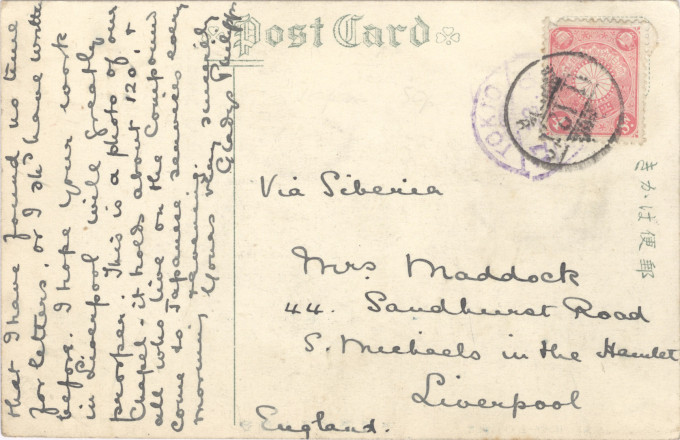 Post Card
TOKIO
きかは便郵
that I have found no time
for letters, or I shd have written
before. I hope your work
in Liverpool will greatly
prosper. This is a photo of our
Chapel. it holds about 120. &
all who live on the Compound
come to Japanese services every
morning & evening.
Yours very sincerely
Gladys
Via Siberia
Mrs. Maddock
44. Sandhurst Road
S. Michaels in the Hamlet
Liverpool
England.